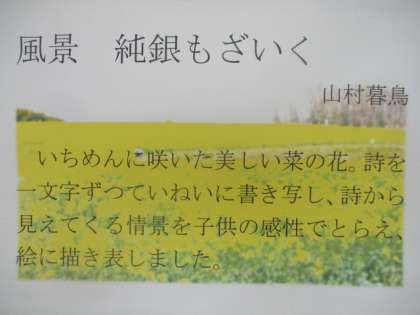 風景　純銀もざいく
山村暮鳥
いちめんに咲いた美しい菜の花。詩を
一文字ずつていねいに書き写し、詩から
見えてくる情景を子供の感性でとらえ、
絵に描き表しました。